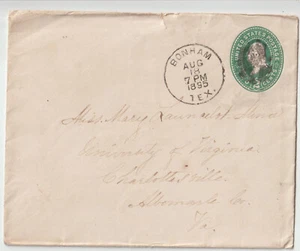 BONHAM
AUG
18
7 PM
1895
TEX.
UNITED STATES POSTAGE
Miss Mary
University of Virginia
Charlottesville
Albemarle Co.
Va.